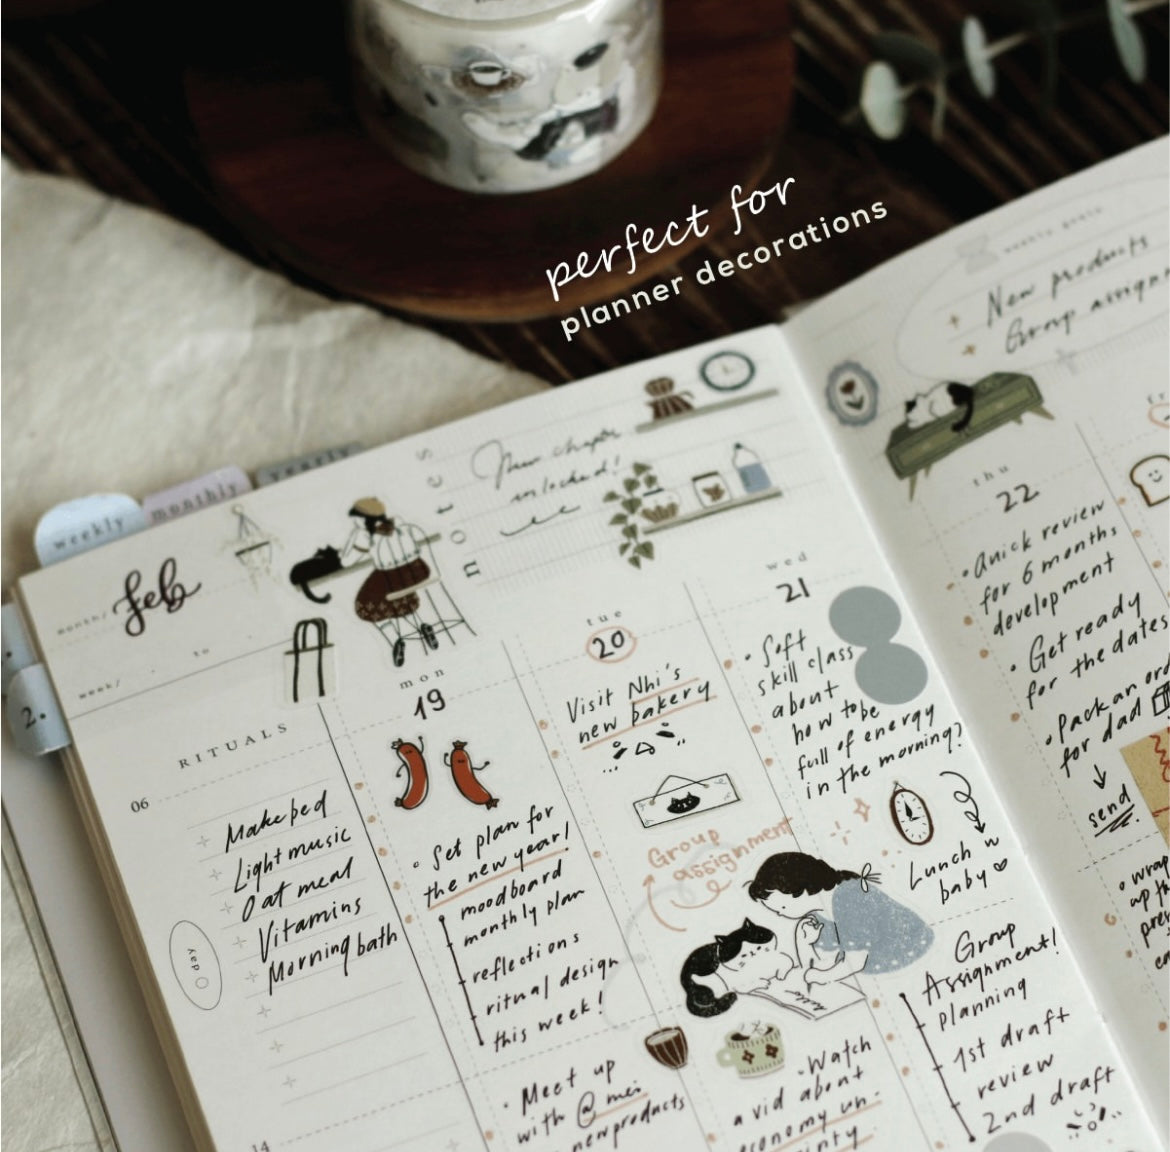 perfect for
planner decorations
weekly
monthly
yearly
notes
New chapter
unlocked!
weekly goals
New products
Group assign
month/
feb
to
week/
2.
RITUALS
06
Make bed
Light music
Oat meal
Vitamins
Morning bath
day
14
mon
19
• Set plan for
the new year!
moodboard
monthly plan
reflections
ritual design
this week!
• Meet up
with @mei
newproducts
tue
20
Visit Nhi's
new bakery
Group
assignment
hello
• Watch
a vid about
economy un-
wed
21
• Soft
skill class
about
how to be
full of energy
in the morning?
Lunch w
baby
Group
Assignment!
planning
1st draft
review
2nd draft
thu
22
• Quick review
for 6 months
development
• Get ready
for the dates
• Pack an ord
for dad
send
• wrap
up th